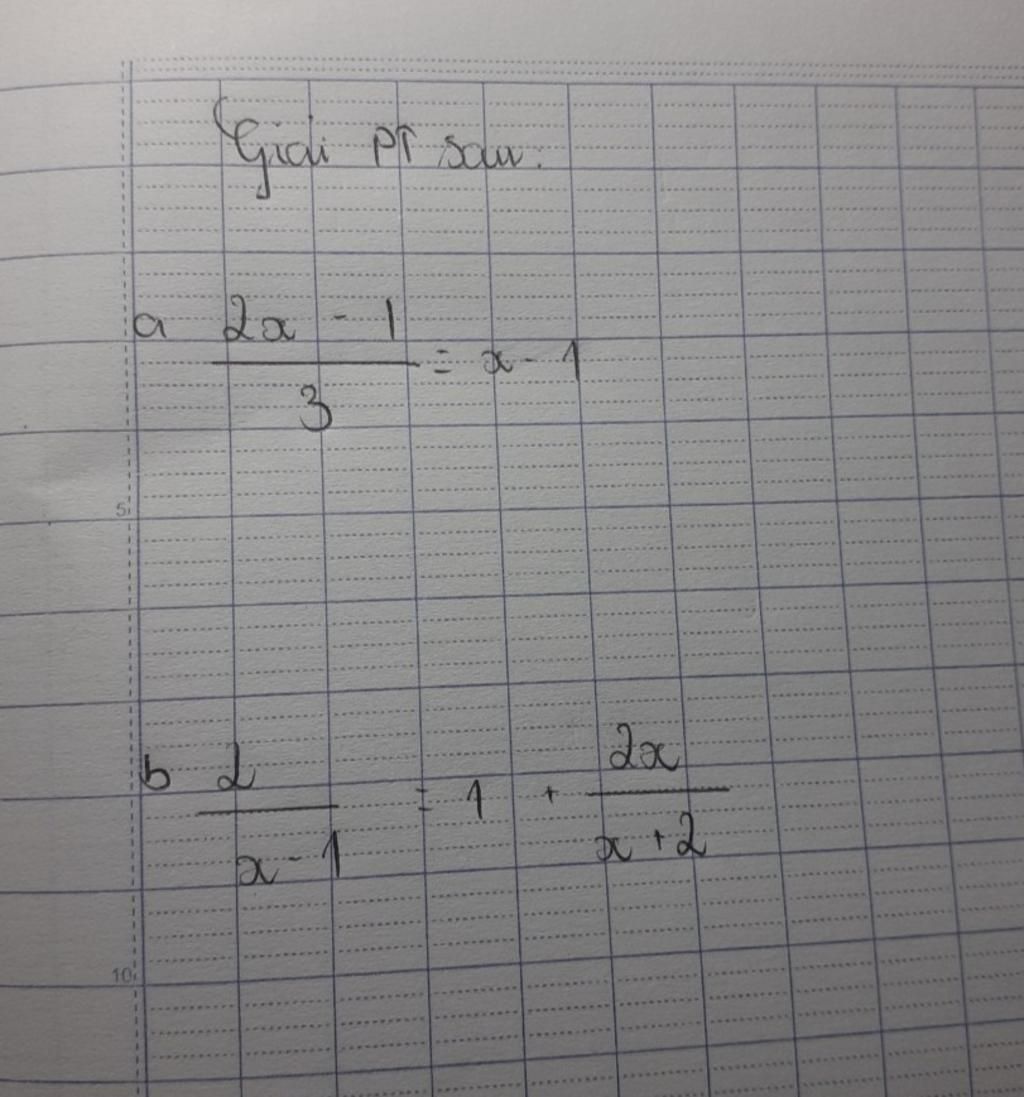 Giải PT sau:
a (2x - 1)/3 = x - 1
5
b 2/(x - 1) = 1 + 2x/(x + 2)
10